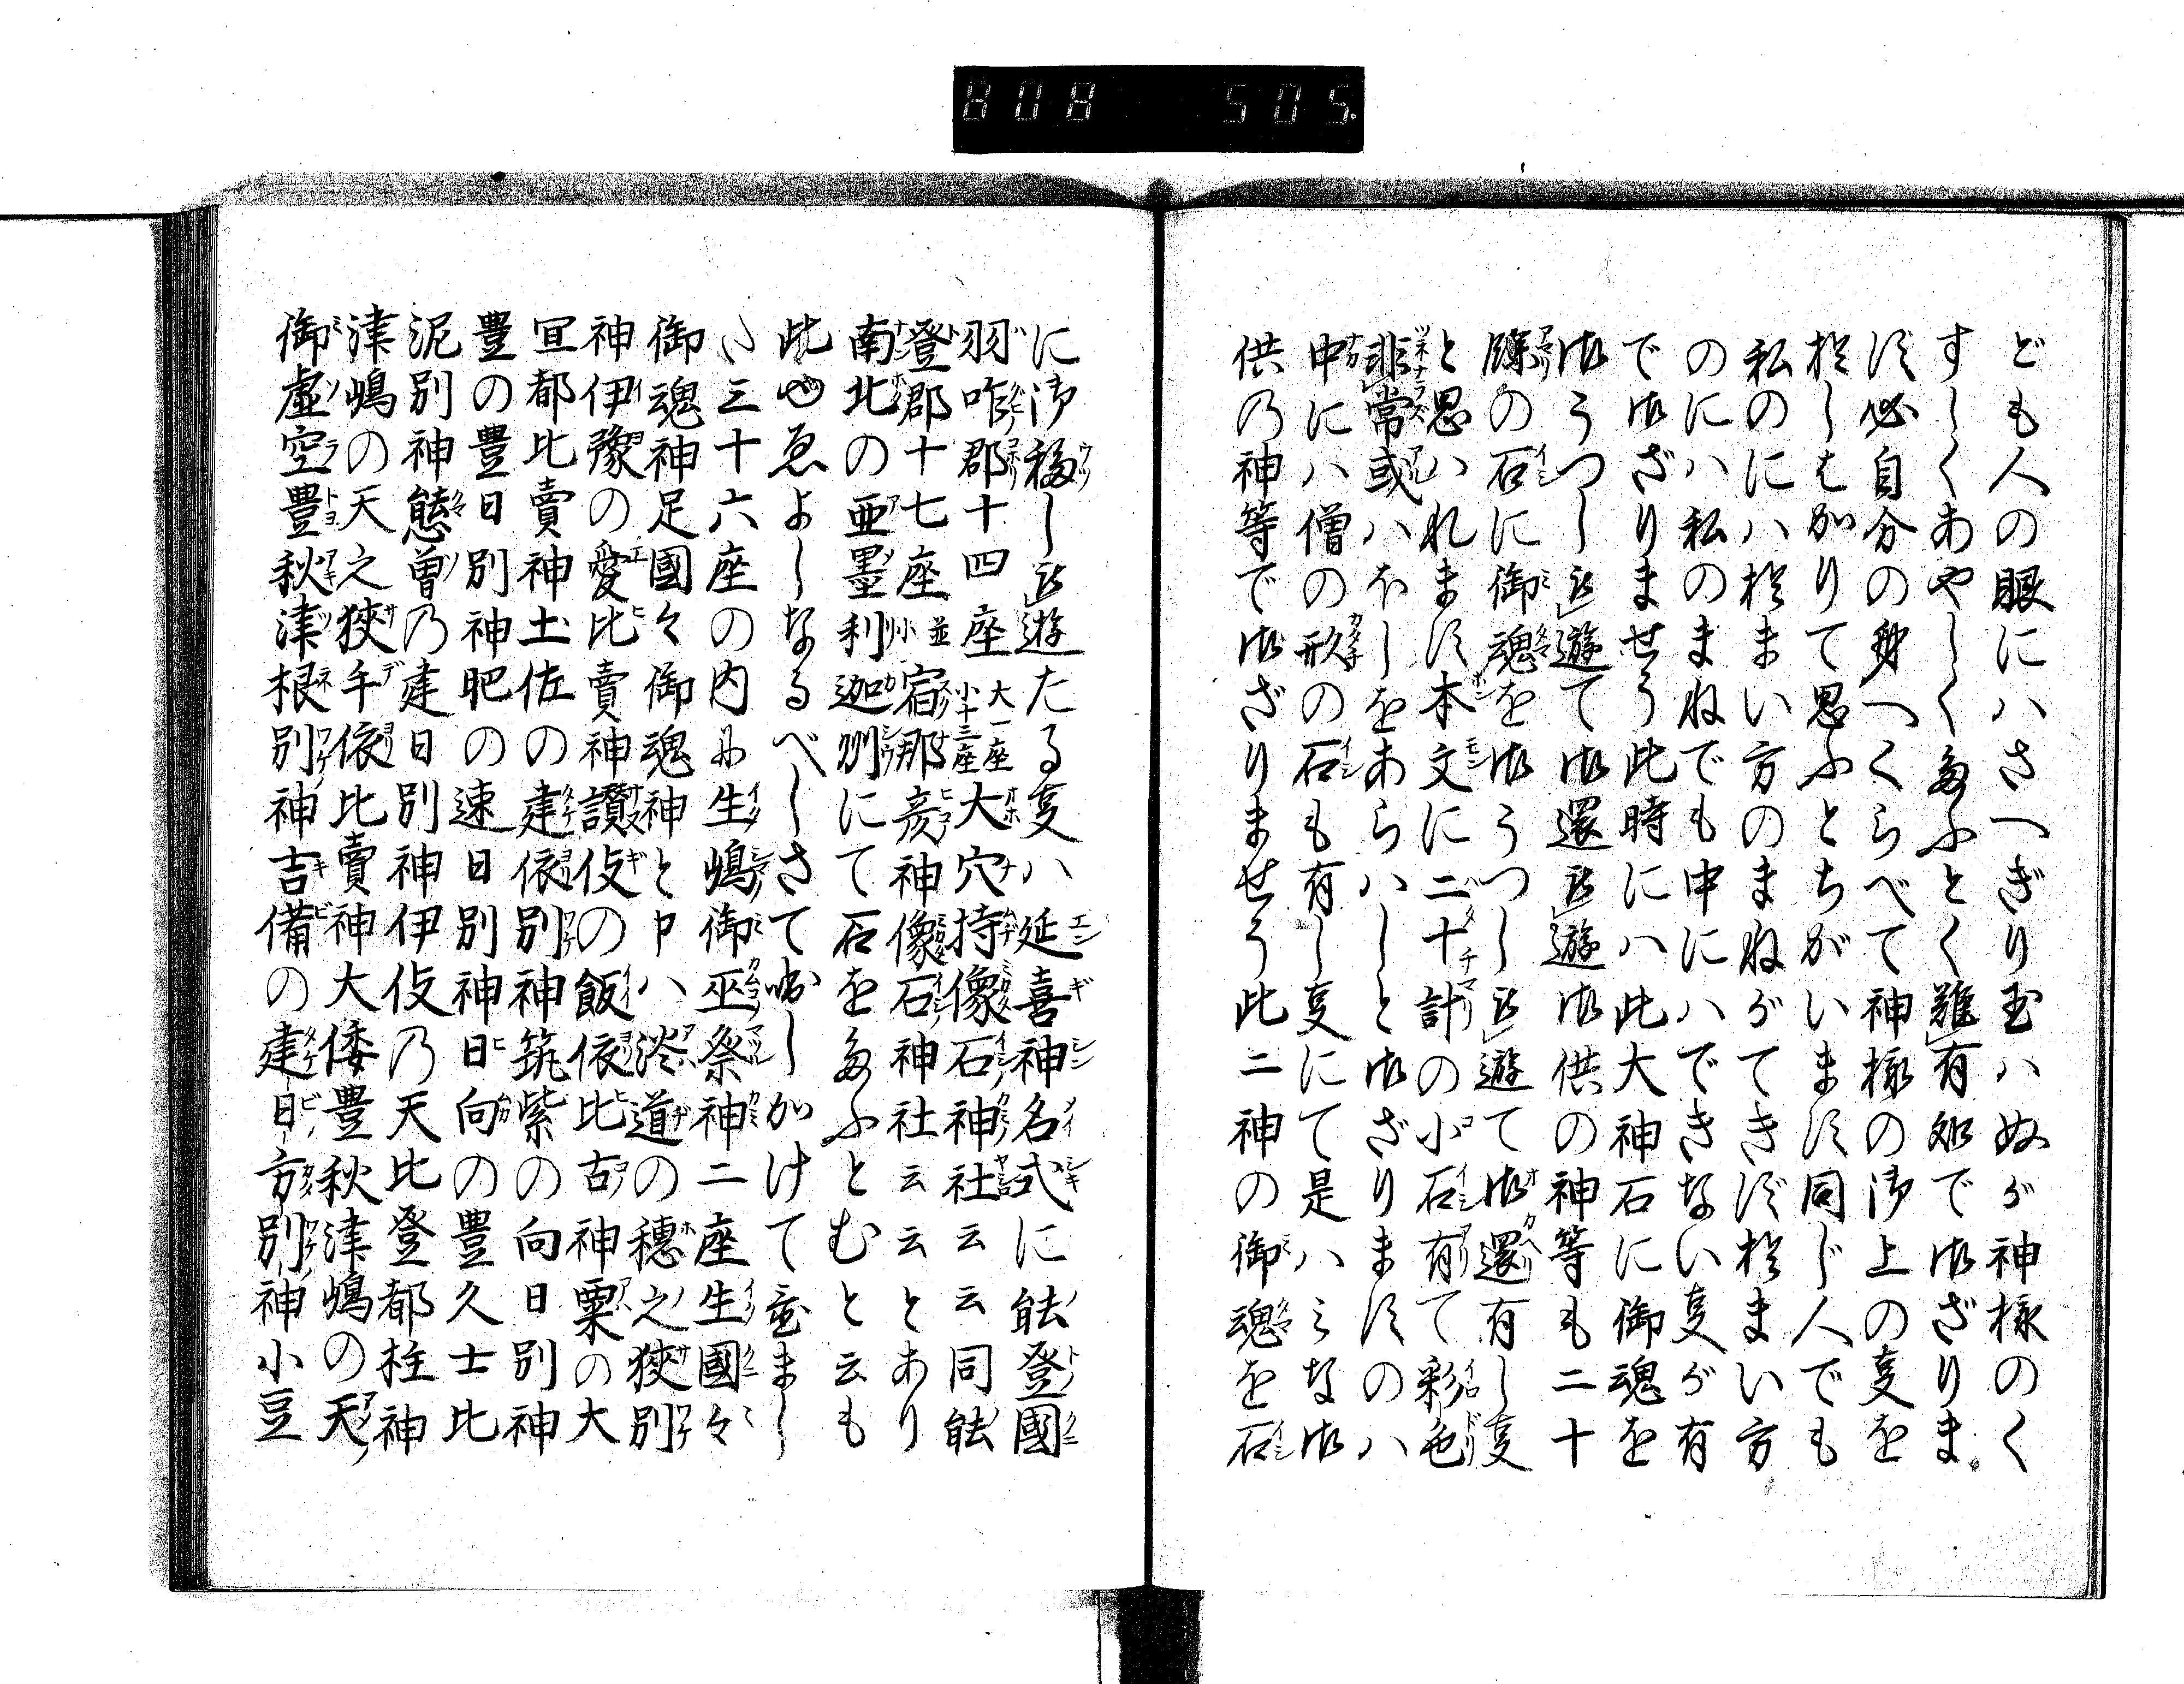 808 505
ども人の眼にハさへぎり玉ハぬが神様のく
すしくあやしく多ふとく難有処で御ざりま
す必自分の身へくらべて神様の御上の事を
推しはかりて思ふとちがいます同じ人でも
私のにハ推まい方のまねがてきず推まい方
のにハ私のまねでも中にハできない事が有
で御ざりませう此時にハ此大神石に御魂を
御うつし被遊て御還被遊御供の神等も二十
の石に御魂を御うつし被遊て御還有し事
と思ハれます本文に二十計の小石有て彩色
非常或ハ
中にハ僧の形の石も有し事にて是ハミな御
供の神等で御ざりませう此二神の御魂を石
に御移し被遊たる事ハ延喜神名式に能登國
羽咋郡十四座大一座小十三座大穴持像石神社云云同能
登郡十七座並小宿那彦神像石神社云云とあり
南北の亜墨利迦洲にて石を多ふとむと云も
此ゆゑよしなるべしさて
い三十六座の内に生嶋御巫祭神二座生國々
御魂神足國々御魂神と申ハ淡道の穂之狹別
神伊豫の愛比賣神讃伎の飯依比古神粟の大
宜都比賣神土佐の建依別神筑紫の向日別神
豊の豊日別神肥の速日別神日向の豊久士比
泥別神熊曽乃建日別神伊伎乃天比登都柱神
津嶋の天之狹手依比賣神大倭豊秋津嶋の天
御虚空豊秋津根別神吉備の建日方別神小豆